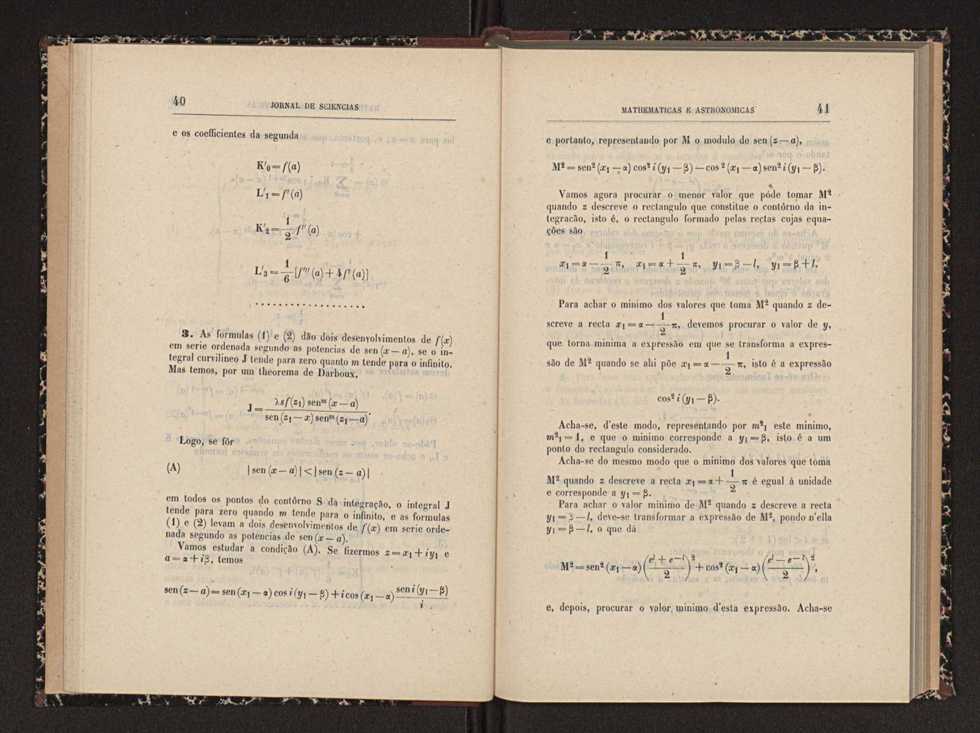 40
JORNAL DE SCIENCIAS
e os coefficientes da segunda
K'₀ = f(a)
L'₁ = f'(a)
K'₂ = 1/2 f''(a)
L'₃ = 1/6 [f'''(a) + 4f'(a)]
. . . . . . . . . . . . . . . . .
3. As formulas (1) e (2) dão dois desenvolvimentos de f(x)
em serie ordenada segundo as potencias de sen (x — a), se o in-
tegral curvilineo J tende para zero quanto m tende para o infinito.
Mas temos, por um theorema de Darboux,
J = λsf(z₁) senᵐ (x — a) / sen (z₁ — x) senᵐ (z₁ — a).
Logo, se fôr
(A) | sen (x — a) | < | sen (z — a) |
em todos os pontos do contôrno S da integração, o integral J
tende para zero quando m tende para o infinito, e as formulas
(1) e (2) levam a dois desenvolvimentos de f(x) em serie orde-
nada segundo as potencias de sen (x — a).
Vamos estudar a condição (A). Se fizermos z = x₁ + iy₁ e
a = α + iβ, temos
sen (z — a) = sen (x₁ — α) cos i (y₁ — β) + i cos (x₁ — α) sen i (y₁ — β) / i .
MATHEMATICAS E ASTRONOMICAS
41
e portanto, representando por M o modulo de sen (z — a),
M² = sen² (x₁ — α) cos² i (y₁ — β) — cos² (x₁ — α) sen² i (y₁ — β).
Vamos agora procurar o menor valor que póde tomar M²
quando z descreve o rectangulo que constitue o contôrno da in-
tegração, isto é, o rectangulo formado pelas rectas cujas equa-
ções são
x₁ = α — 1/2 π, x₁ = α + 1/2 π, y₁ = β — l, y₁ = β + l.
Para achar o minimo dos valores que toma M² quando z de-
screve a recta x₁ = α — 1/2 π, devemos procurar o valor de y,
que torna minima a expressão em que se transforma a expres-
são de M² quando se ahi põe x₁ = α — 1/2 π, isto é a expressão
cos² i (y₁ — β).
Acha-se, d'este modo, representando por m²₁ este minimo,
m²₁ = 1, e que o minimo corresponde a y₁ = β, isto é a um
ponto do rectangulo considerado.
Acha-se do mesmo modo que o minimo dos valores que toma
M² quando z descreve a recta x₁ = α + 1/2 π é egual á unidade
e corresponde a y₁ = β.
Para achar o valor minimo de M² quando z descreve a recta
y₁ = β — l, deve-se transformar a expressão de M², pondo n'ella
y₁ = β — l, o que dá
M² = sen² (x₁ — α) (eˡ + e⁻ˡ / 2)² + cos² (x₁ — α) (eˡ — e⁻ˡ / 2)²,
e, depois, procurar o valor minimo d'esta expressão. Acha-se